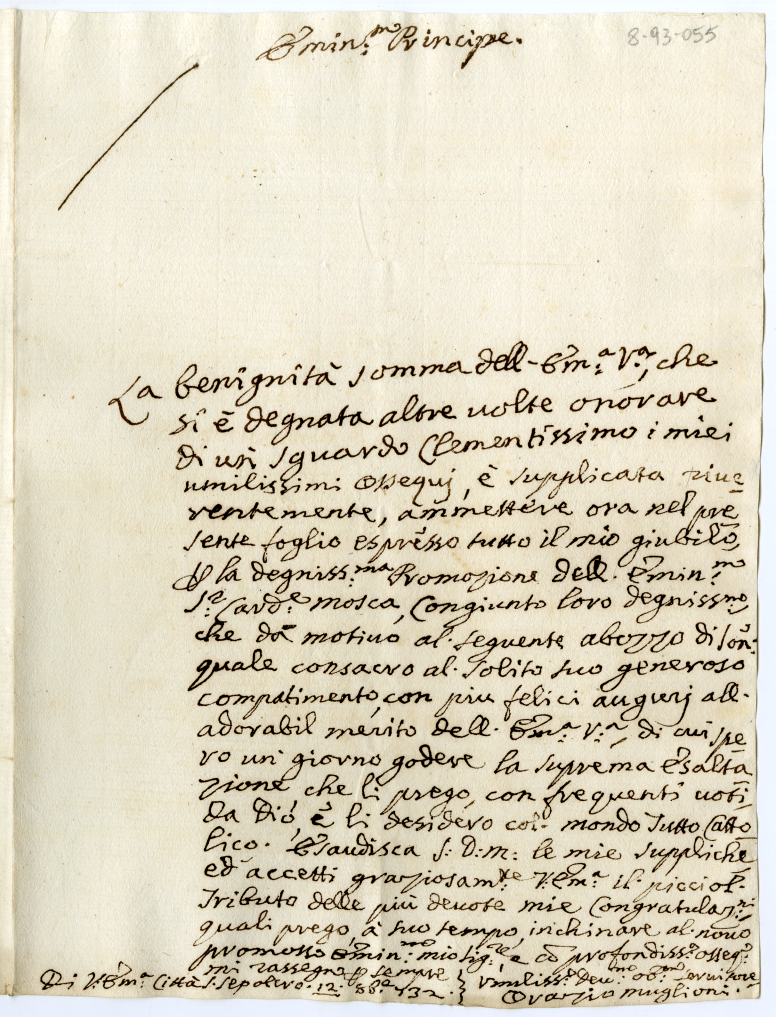 8-93-055
Emin.mo Principe.
La benignità somma dell- Em:a V:a, che
si è degnata altre volte onorare
di un sguardo Clementissimo i miei
umilissimi Ossequj, è supplicata rive
rentemente, ammettere ora nel pre
sente foglio espresso tutto il mio giubilo,
p la degniss:ma Promozione dell. Emin:mo
S:r Card:e mosca, Congiunto loro degnissmo,
che dà motivo al. seguente abozzo di Son:
quale consacro al. solito suo generoso
compatimento, con piu felici augurj all-
adorabil merito dell. Em:a V:a, di cui spe
ro un giorno godere la suprema Esalta
zione che li prego, con frequenti voti
da Dio, è li desidero col. mondo Tutto Catto
lico. Esaudisca S: D: M: le mie suppliche
ed accetti graziosam:te V: Em:a il picciol.
Tributo delle più devote mie Congratulaz:ni
quali prego à suo tempo, inchinare al. novo
promosso Emin:mo mio Sig:re, e cō profondiss: osseq:
mi rassegno p sempre
Di V: Em:a Città S. Sepolcro. 12: 8b:e 732. } Umiliss: dev:mo ob:mo servitore
Orazio muglioni.